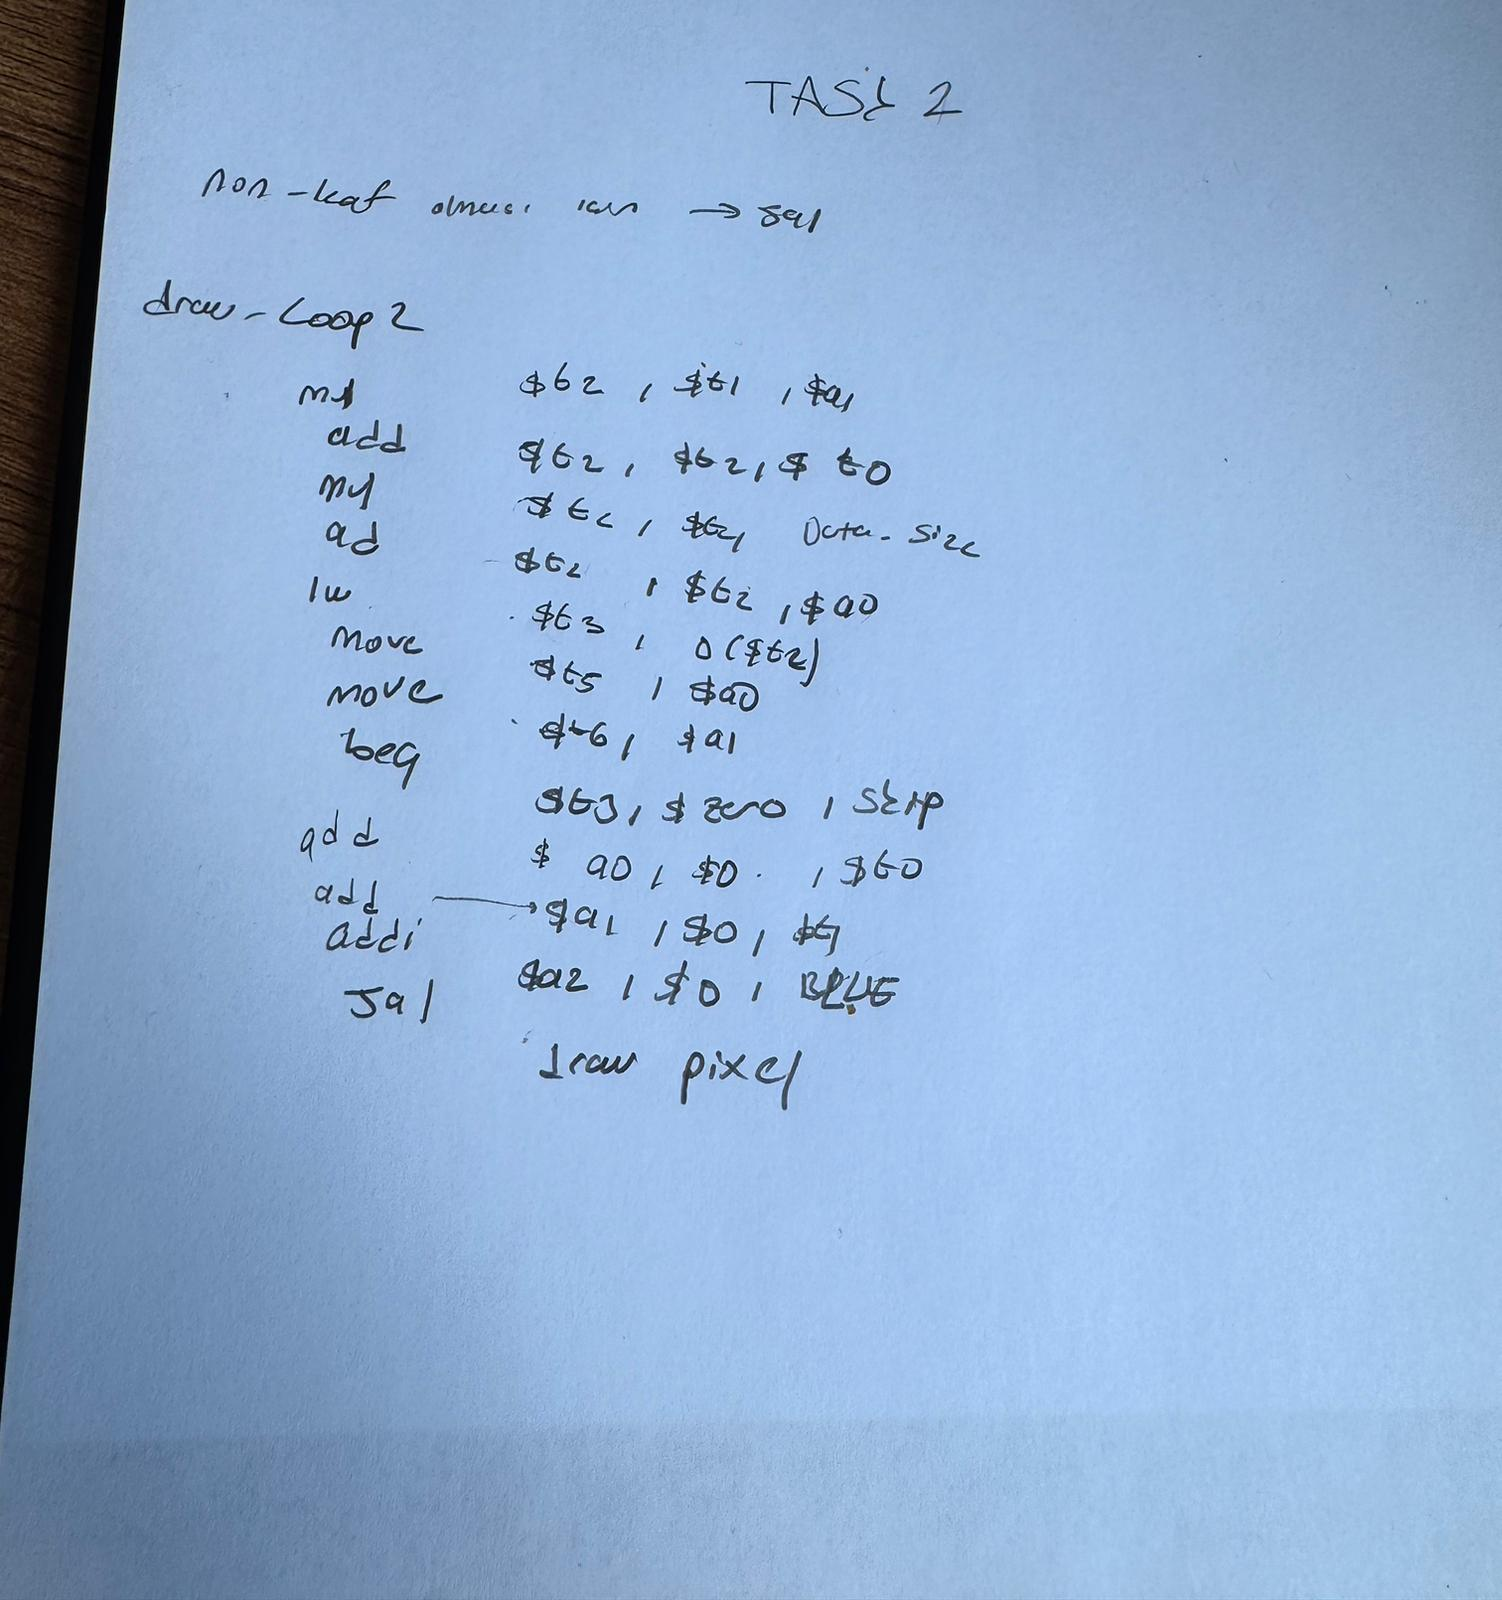 TASK 2
non-leaf olması icin → jal
draw-Loop2
mul $t2, $t1, $a1
add $t2, $t2, $t0
mul $t2, $t2, Data-Size
ad $t2, $t2, $a0
lw $t3, 0($t2)
move $t5, $a0
move $t6, $a1
beq $t3, $zero, Skip
add $a0, $0, $t0
add → $a1, $0, $t1
addi $a2, $0, BLUE
Jal draw pixel